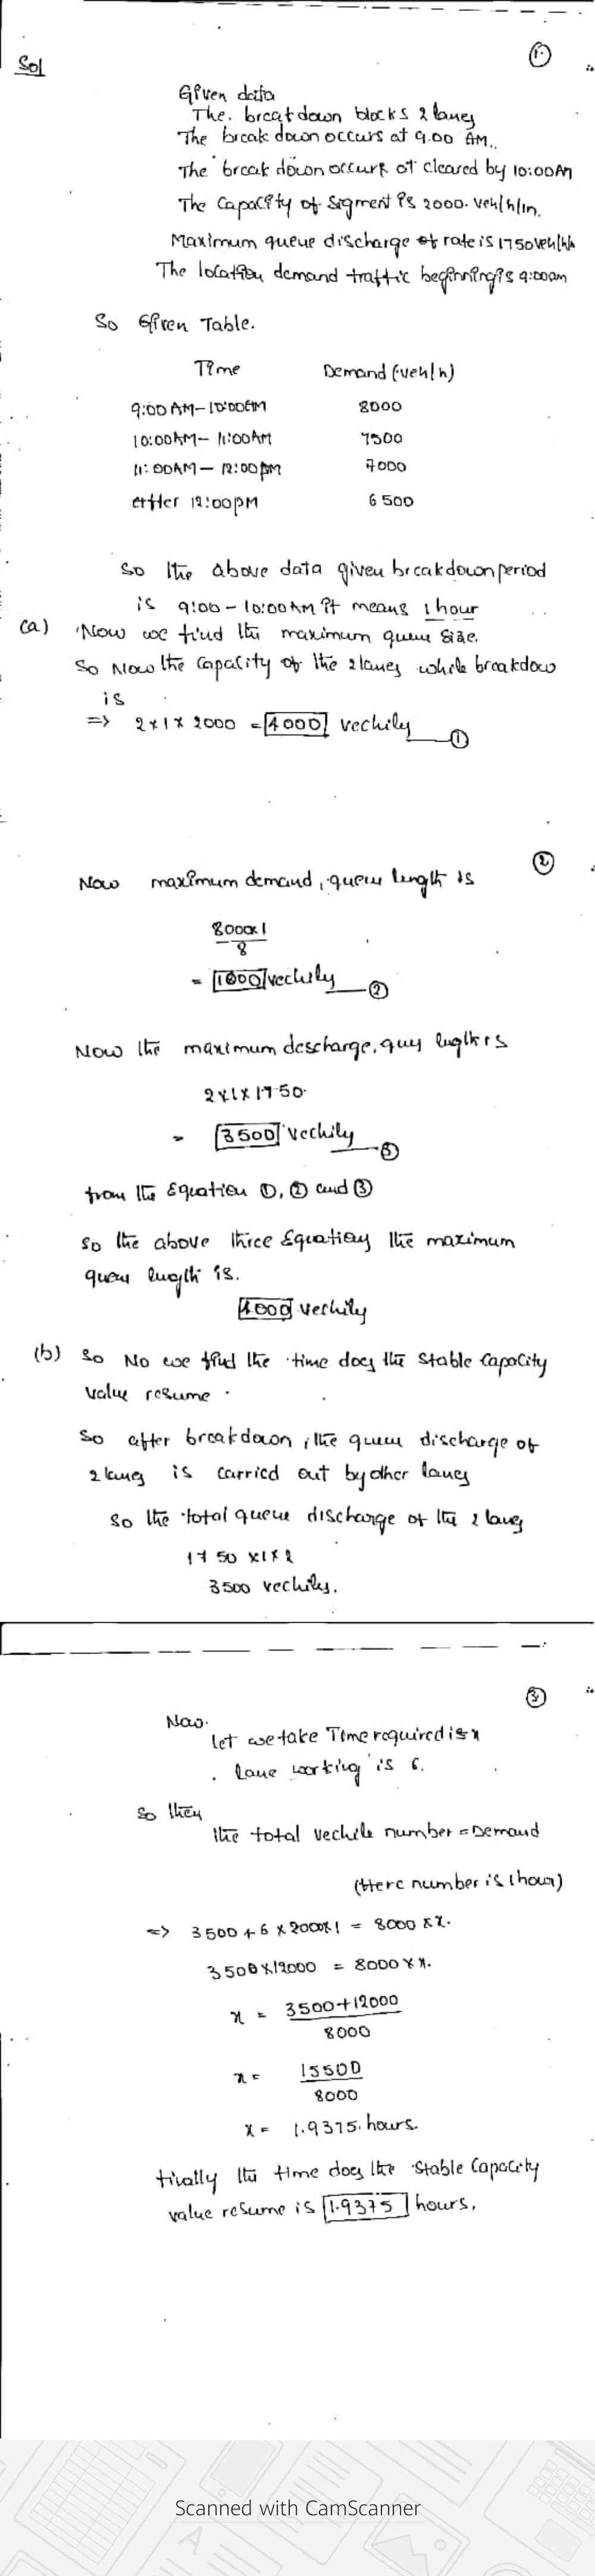 ①
Sol
Given data
The. breatdown blocks 2 laney
The break down occurs at 9.00 AM..
The break down occurs ot cleared by 10:00An
The Capacity of Sigment is 2000. veh/h/ln.
Maximum queue discharge of rate is 1750 veh/h/ln
The location demand traffic beginning is 9:00am
So Given Table.
Time Demand (veh/h)
9:00 AM-10:00AM 8000
10:00AM- 11:00AM 7500
11:00AM- 12:00pM 7000
after 12:00pM 6500
So the above data given breakdown period
is 9:00-10:00AM it means 1 hour
(a) Now we find the maximum queue size.
So Now the capacity of the 2 lanes while breakdow
is
=> 2×1×2000 = 4000 vechily ①
②
Now maximum demand, queu length is
8000×1
8
= 1000 vechily ②
Now the maximum descharge, quy lugth is
2×1×1750.
= 3500 vechily ③
from the Equation ①, ② and ③
So the above three Equatiay the maximum
queu lugth is.
4000 vechily
(b) So No we find the time does the stable Capocity
value resume.
So after breakdown, the queue discharge of
2 lanes is carried out by other lanes
So the total queue discharge of the 2 laves
1750 ×1×2
3500 vechiles.
③
Now.
let we take Time required is x
. lane working is 6.
So then
the total vechile number = Demand
(Here number is 1 hour)
=> 3500 + 6 × 2000×1 = 8000 × x.
3500×12000 = 8000 × x.
x = 3500+12000
8000
x = 15500
8000
x = 1.9375. hours.
finally the time does the stable Capacity
value resume is 1.9375 hours.
Scanned with CamScanner